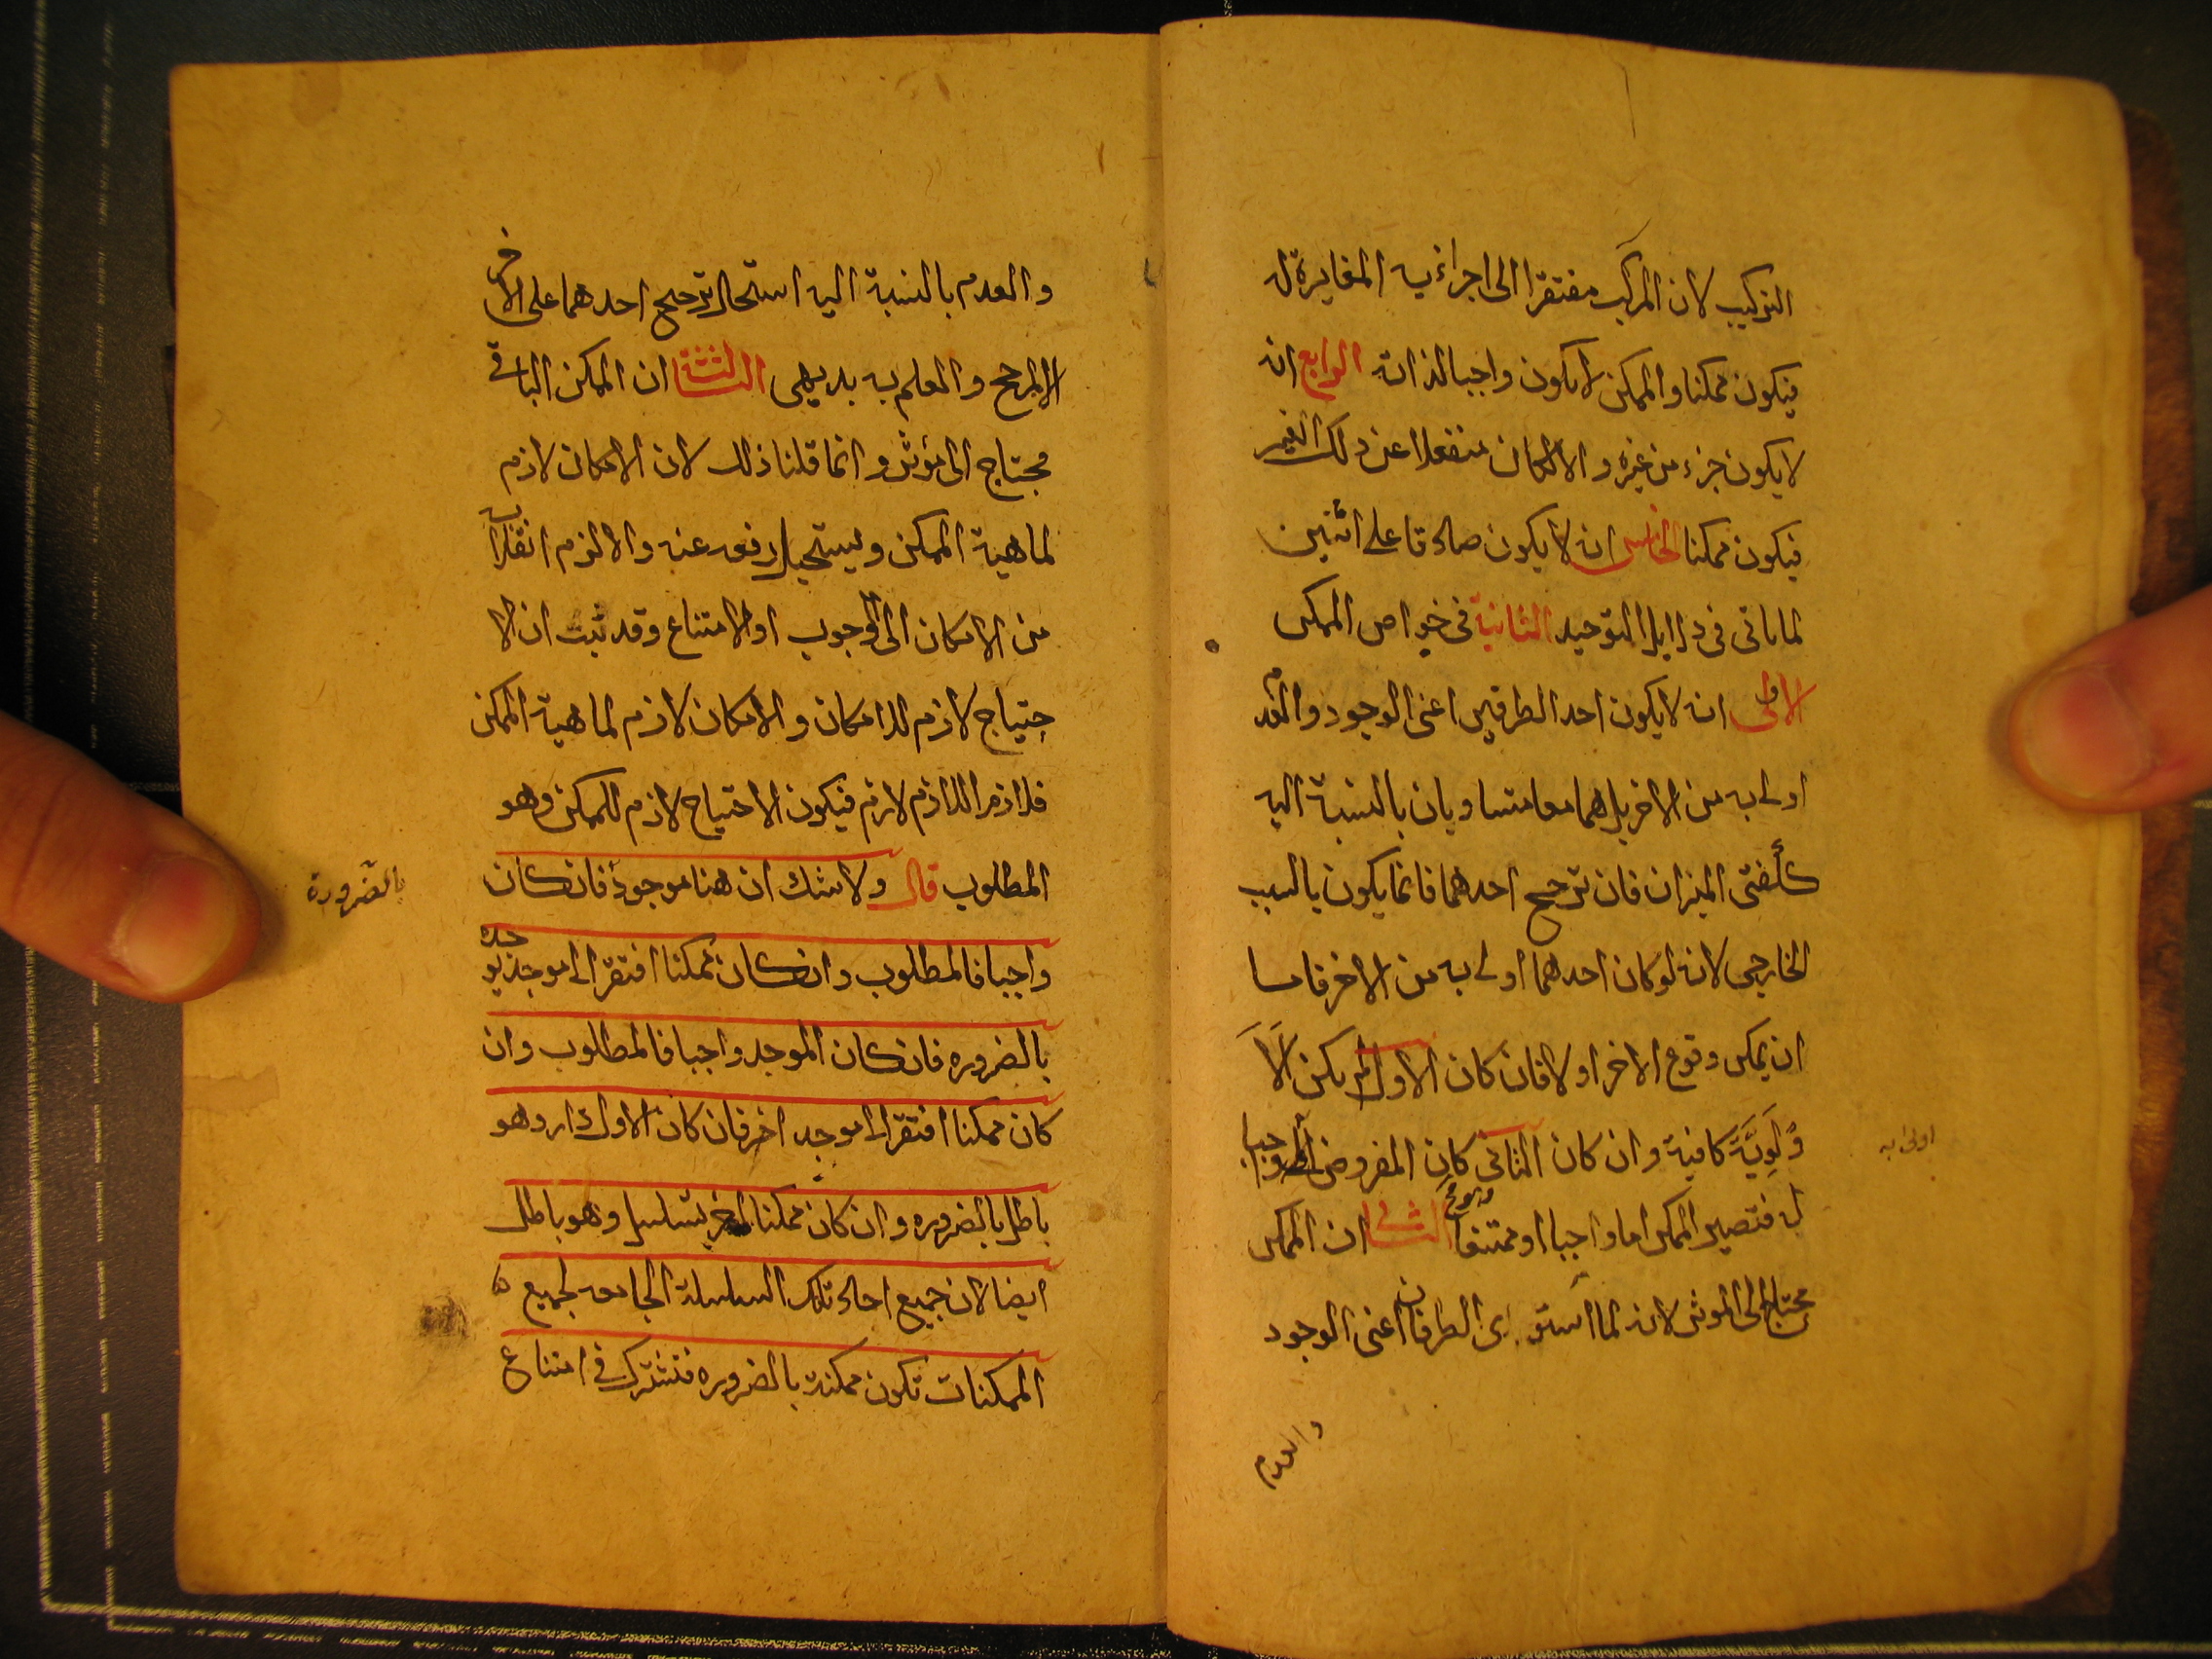 التركيب لان المركب مفتقرا الى اجزاءيه المغايرة له
فيكون ممكنا والممكن لايكون واجبا لذاته الرابع انه
لايكون جزء من غيره والالكان منفعلا عن ذلك الغير
فيكون ممكنا الخامس انه لايكون صادقا على اثنين
لماياتى فى دلايل التوحيد الثانية فى خواص الممكن
الاولى انه لايكون احد الطرفين اعنى الوجود والعدم
اولى به من الاخر بل هما معا متساويان بالنسبة اليه
ككفتى الميزان فان ترجح احدهما فانما يكون بالسبب
الخارجى لانه لوكان احدهما اولى به من الاخر فاما
ان يمكن وقوع الاخر اولا فان كان الاول لم يكن الا
ولوية كافية وان كان الثانى كان المفروض واجبا
اولى به
له فتصير الممكن اما واجبا او ممتنعا وهو مح الثانى ان الممكن
محتاج الى الموثر لانه لما استوى الطرفان اعنى الوجود
والعدم
والعدم بالنسبة اليه استحال ترجيح احدهما على الاخر
الالمرجح والعلم به بديهى الثالثة ان الممكن الباقى
محتاج الى مؤثر وانما قلنا ذلك لان الامكان لازم
لماهية الممكن ويستحيل رفعه عنه والالزم انقلابه
من الامكان الى الوجوب او الامتناع وقد ثبت ان الا
حتياج لازم للامكان والامكان لازم لماهية الممكن
فلازم اللازم لازم فيكون الاحتياج لازم للممكن وهو
المطلوب قال ولاشك ان هنا موجودا فان كان
بالضرورة
واجبا فالمطلوب وان كان ممكنا افتقر الى موجد يوجده
بالضروره فان كان الموجد واجبا فالمطلوب وان
كان ممكنا افتقر الى موجد اخر فان كان الاول دار وهو
باطل بالضروره وان كان ممكنا اخر يتسلسل وهو باطل
ايضا لان جميع احاد تلك السلسلة الجامعه لجميع
الممكنات تكون ممكنة بالضروره فتشترك فى امتناع